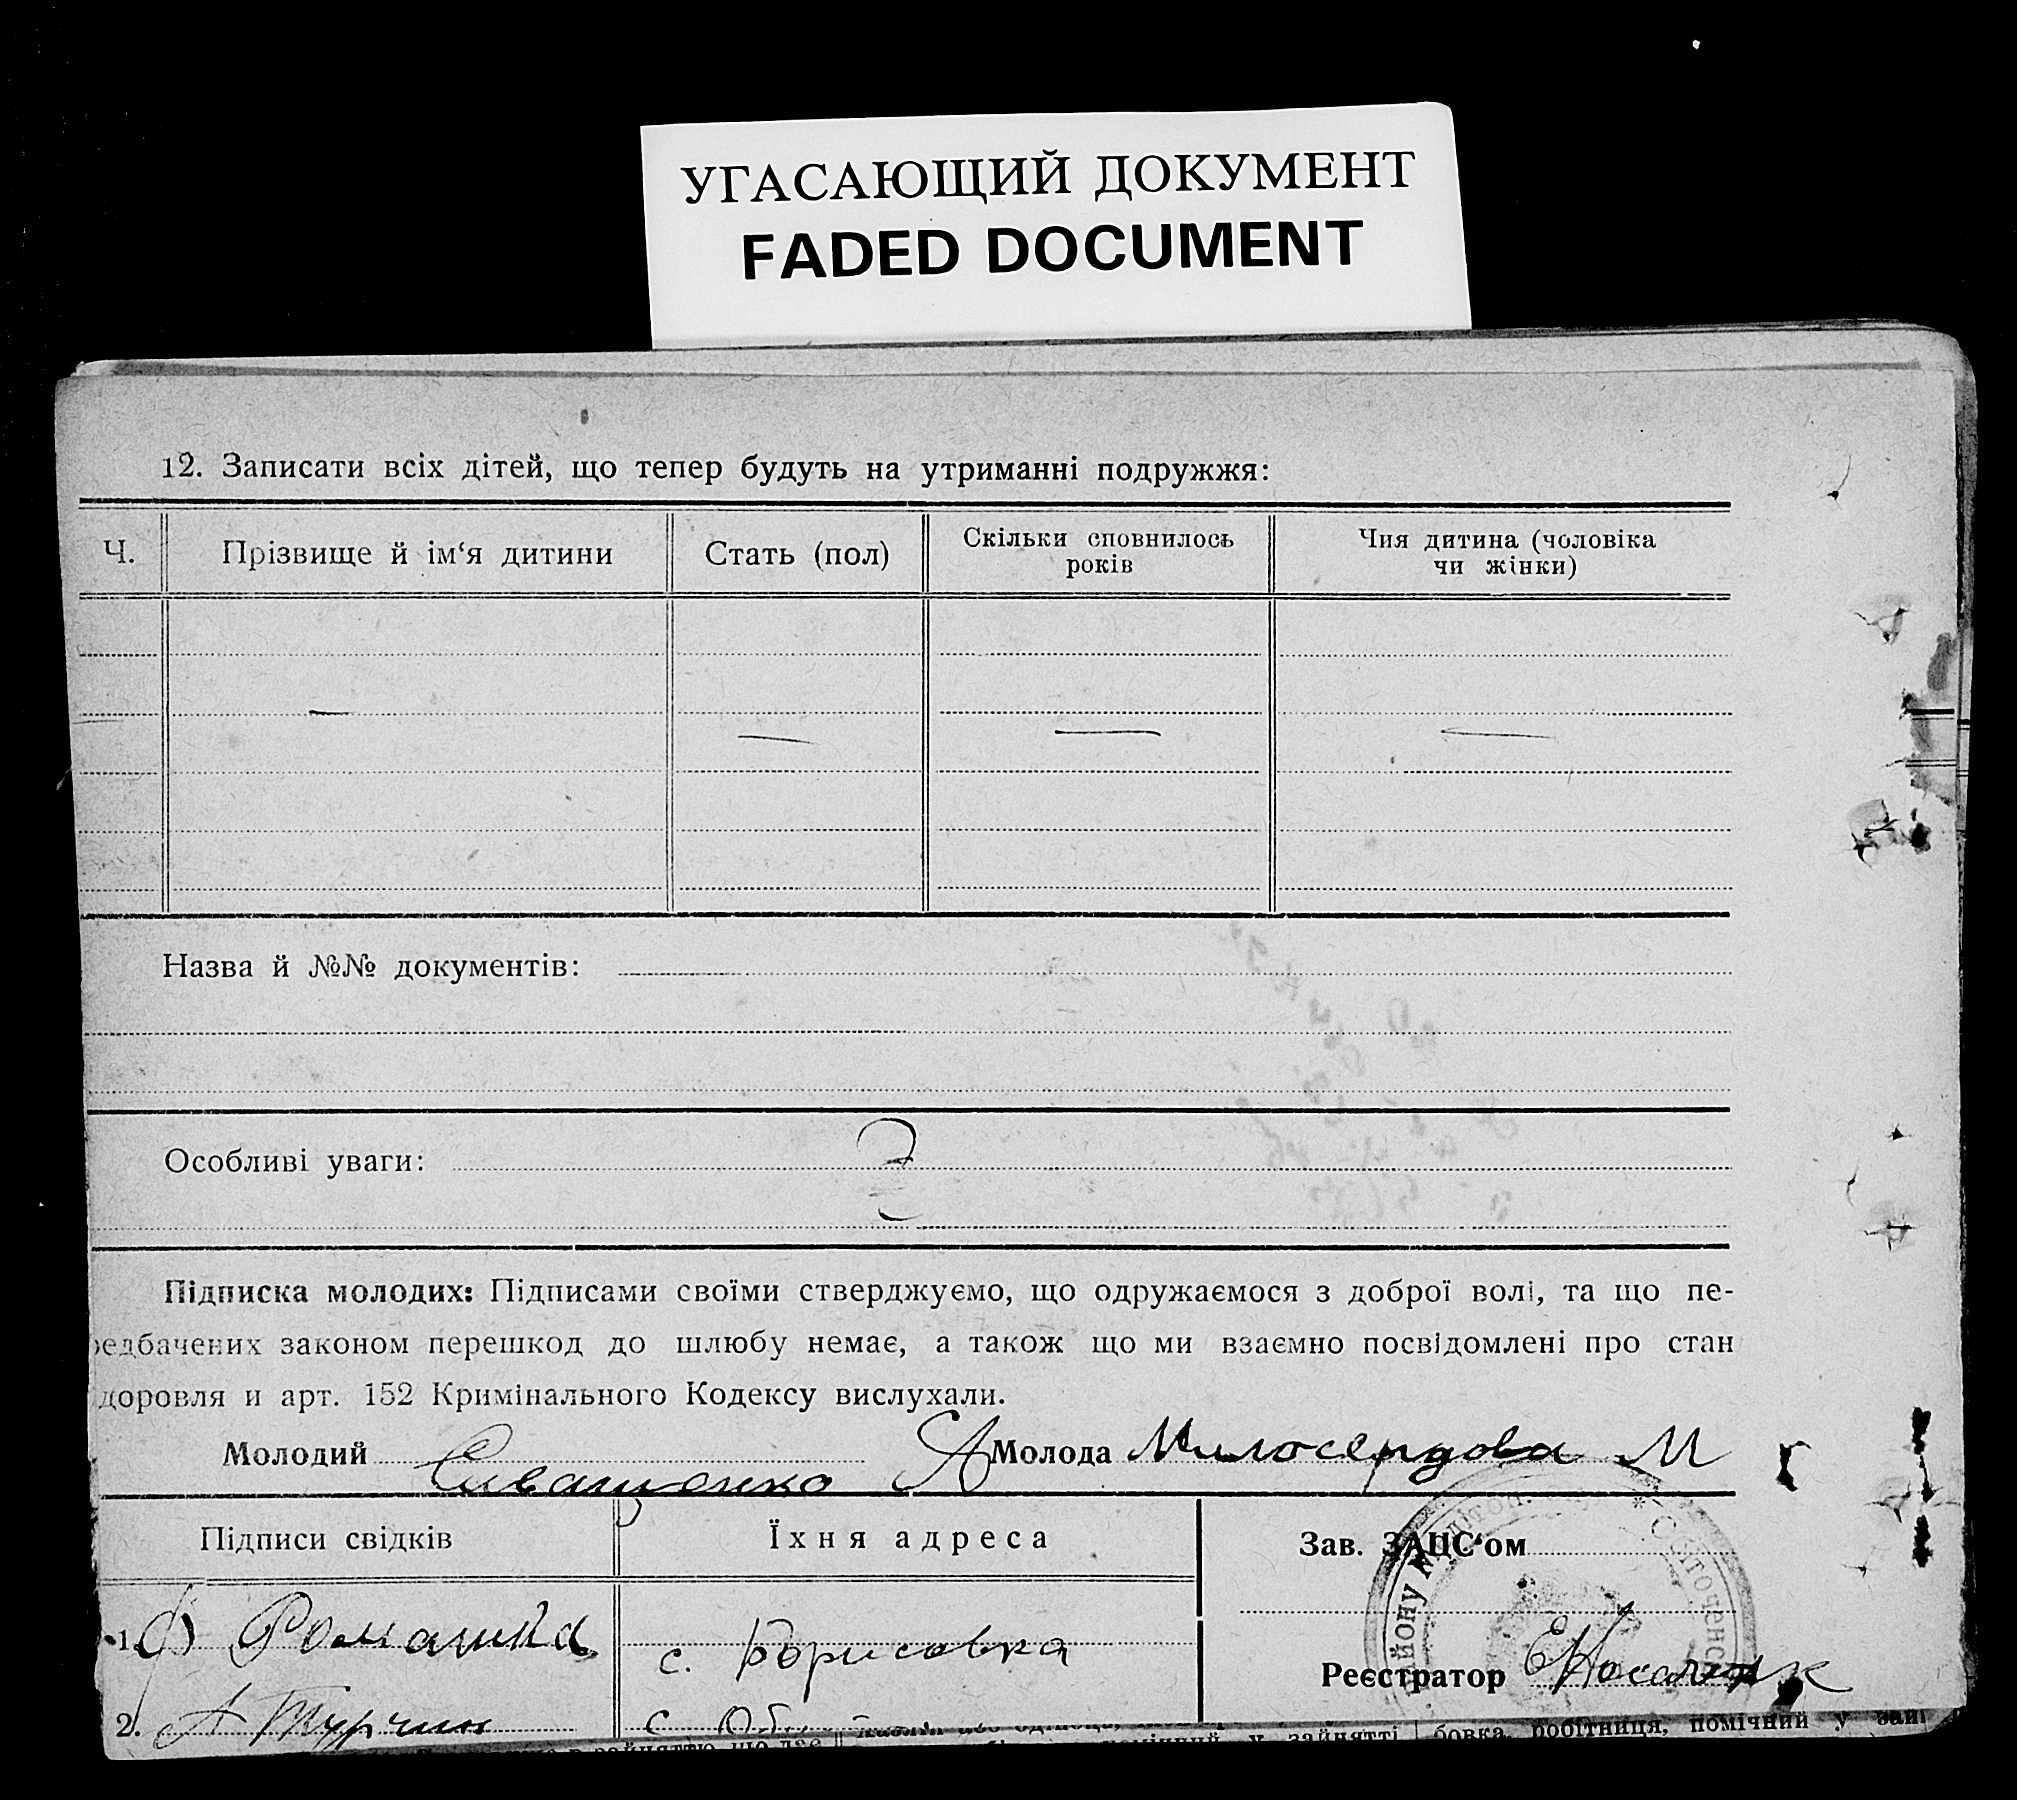 УГАСАЮЩИЙ ДОКУМЕНТ
FADED DOCUMENT
12. Записати всіх дітей, що тепер будуть на утриманні подружжя:
Ч. Прізвище й ім‘я дитини Стать (пол) Скільки сповнилось років Чия дитина (чоловіка чи жінки)
Назва й №№ документів:
Особливі уваги:
Підписка молодих: Підписами своїми стверджуємо, що одружаємося з доброї волі, та що пе-
редбачених законом перешкод до шлюбу немає, а також що ми взаємно посвідомлені про стан
доровля и арт. 152 Кримінального Кодексу вислухали.
Молодий А Молода Милосердова М
Підписи свідків Їхня адреса Зав. ЗАЦС‘ом
1. Ф Ромашка с. Борисовка
Реєстратор
2. А Турчин с
зайнятті бовка, робітниця, помічний у